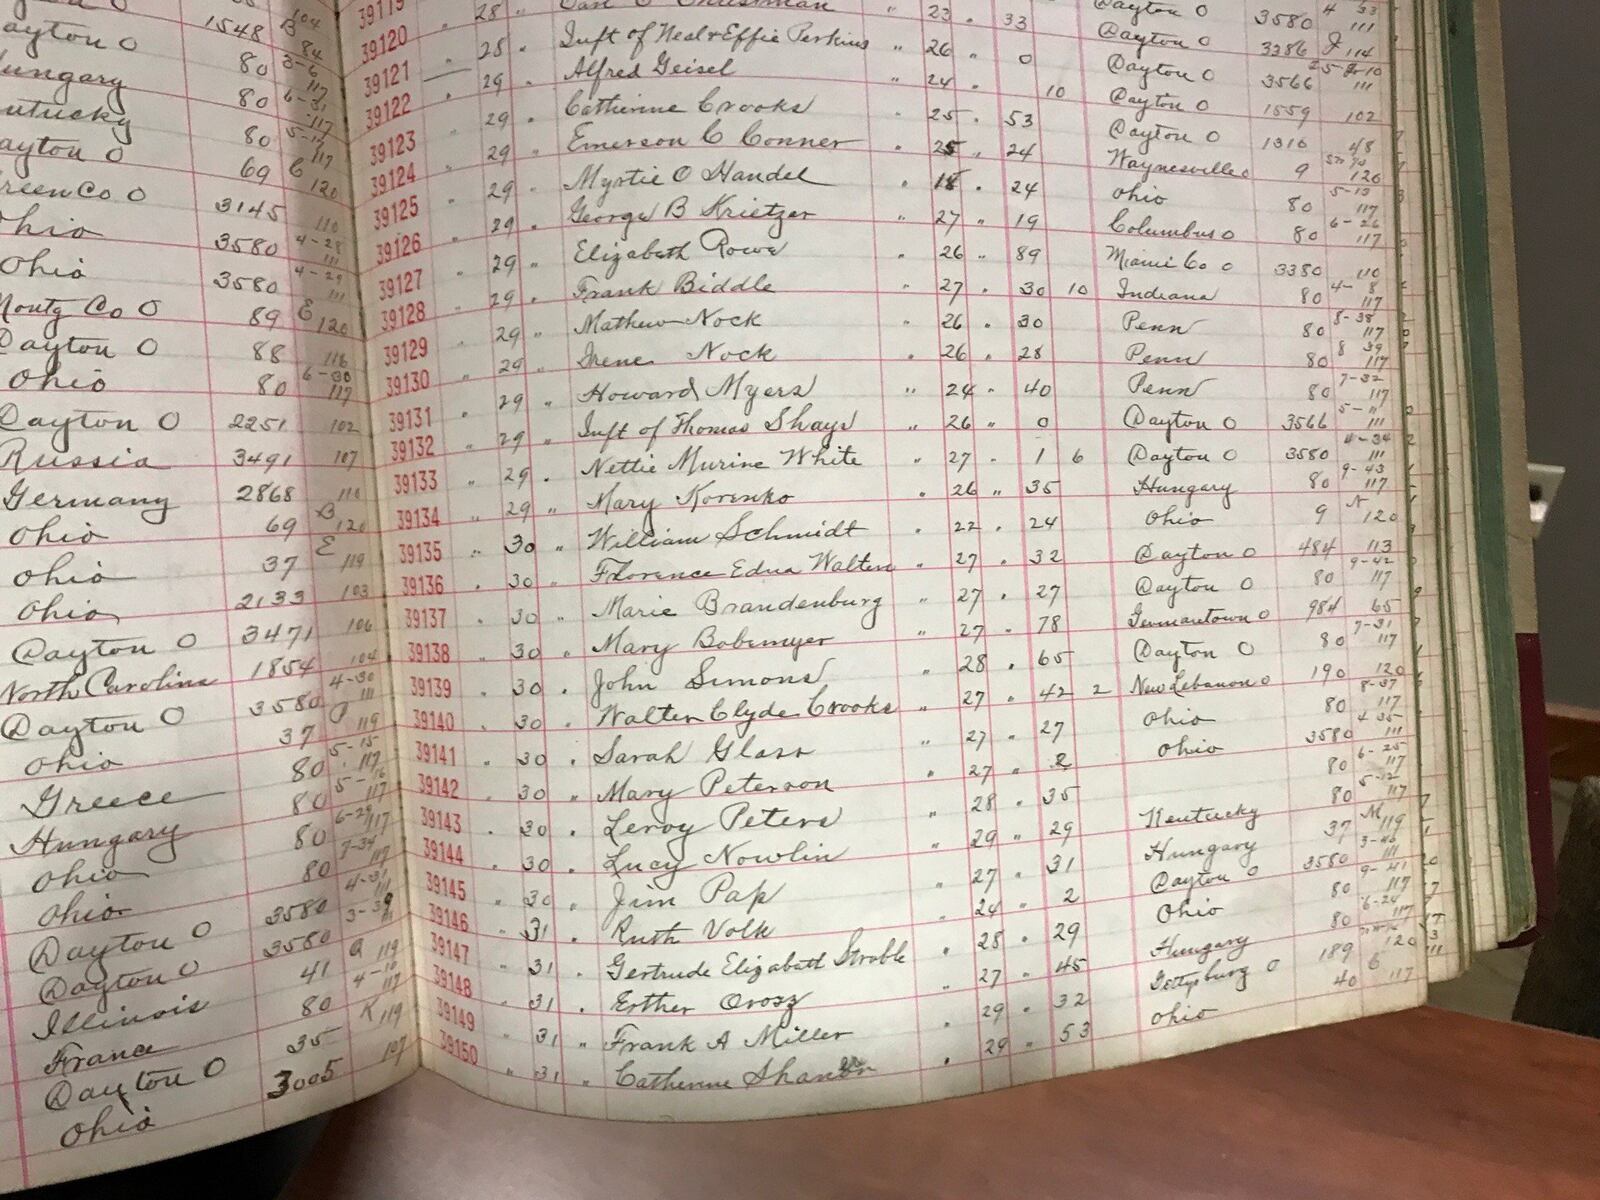 ayton O 1548 B 104
ungary 80 3-6 117
ntucky 80 6-31 117
ayton O 80 5-17 117
reen Co O 69 C 120
hio 3145 110
Ohio 3580 4-28 111
Montg Co O 3580 4-29 111
Dayton O 89 E 120
Ohio 88 116
Dayton O 80 6-30 117
Russia 2251 102
Germany 3491 107
Ohio 2868 110
Ohio 69 B 120
Ohio 37 E 119
Dayton O 2133 103
North Carolina 3471 106
Dayton O 1854 104
Ohio 3580 4-30 111
Greece 37 119
Hungary 80 5-15 117
Ohio 80 5-16 117
Ohio 80 6-29 117
Dayton O 80 7-34 117
Dayton O 3580 4-31 111
Illinois 3580 3-39 111
France 41 a 119
Dayton O 80 4-10 117
Ohio 35 K 119
3005 107
39119 28 " Carl C Christman " 23 . 33 Dayton O 3580 4 33 111
39120 . 28 . Inft of Neal & Effie Perkins " 26 " 0 Dayton O 3386 J 114
39121 . 29 . Alfred Geisel " 24 . 10 Dayton O 3566 111
39122 . 29 . Catherine Crooks . 25 . 53 Dayton O 1559 102
39123 . 29 . Emerson C Conner . 25 " 24 Dayton O 1310 98
39124 . 29 . Myrtie O Handel . 18 . 24 Waynesville O 9 120
39125 " 29 . George B Krietzer " 27 " 19 Ohio 80 5-13 117
39126 . 29 " Elizabeth Rowe . 26 " 89 Columbus O 80 6-26 117
39127 . 29 . Frank Biddle . 27 . 30 10 Miami Co O 3380 110
39128 . 29 . Mathew Nock . 26 . 30 Indiana 80 4-8 117
39129 . 29 " Irene Nock . 26 . 28 Penn 80 8-38 117
39130 . 29 " Howard Myers " 24 . 40 Penn 80 8 39 117
39131 . 29 " Inft of Thomas Shays " 26 " 0 Penn 80 7-32 117
39132 " 29 . Nettie Murine White " 27 . 1 6 Dayton O 3566 5-11 111
39133 " 29 " Mary Korenko . 26 " 35 Dayton O 3580 4-34 111
39134 " 30 " William Schmidt . 22 . 24 Hungary 80 9-43 117
39135 " 30 . Florence Edna Walters . 27 . 32 Ohio 9 N 120
39136 . 30 " Marie Brandenburg " 27 . 27 Dayton O 484 113
39137 . 30 . Mary Bobemyer " 27 . 78 Dayton O 80 9-42 117
39138 . 30 . John Simons " 28 . 65 Germantown O 984 65
39139 . 30 . Walter Clyde Crooks " 27 . 42 2 Dayton O 80 7-31 117
39140 . 30 . Sarah Glass " 27 " 27 New Lebanon O 190 120
39141 . 30 " Mary Peterson " 27 " 2 Ohio 80 8-37 117
39142 . 30 . Leroy Peters " 28 . 35 Ohio 3580 4 35 111
39143 . 30 . Lucy Nowlin " 29 " 29 80 6-25 117
39144 . 30 . Jim Pap " 27 . 31 Kentucky 80 5-12 117
39145 " 31 . Ruth Volk . 24 . 2 Hungary 37 M 119
39146 . 31 . Gertrude Elizabeth Stroble . 28 . 29 Dayton O 3580 3-40 111
39147 " 31 . Esther Orosz . 27 . 45 Ohio 80 9-41 117
39148 . 31 " Frank A Miller . 29 . 32 Hungary 80 6-24 117
39149 " 31 " Catherine . 29 " 53 Gettysburg O 189 120
39150 Ohio 40 117